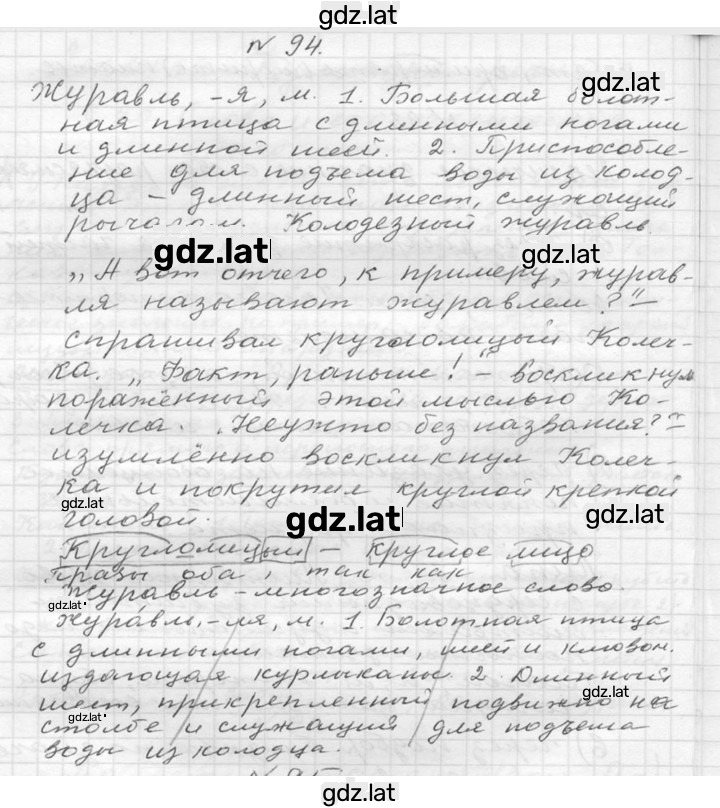 gdz.lat
№ 94.
gdz.lat
Журавль, -я, м. 1. Большая болот-
ная птица с длинными ногами
и длинной шеей. 2. Приспособле-
ние для подъема воды из колод-
ца – длинный шест, служащий
рычагом. Колодезный журавль.
gdz.lat gdz.lat
„А вот отчего, к примеру, журав-
ля называют журавлем?" –
спрашивал круглолицый Колеч-
ка. „Факт, раньше!" – воскликнул
поражённый этой мыслью Ко-
лечка. „Неужто без названия?" –
изумлённо воскликнул Колеч-
ка и покрутил круглой крепкой
gdz.lat
головой.
gdz.lat gdz.lat
Круглолицый – круглое лицо
правы оба, так как
Журавль – многозначное слово.
gdz.lat
Журавль, -ля, м. 1. Болотная птица
с длинными ногами, шеей и клювом.
издающая курлыканье. 2. Длинный
шест, прикрепленный подвижно на
gdz.lat
столбе и служащий для подъема
gdz.lat
воды из колодца.
gdz.lat